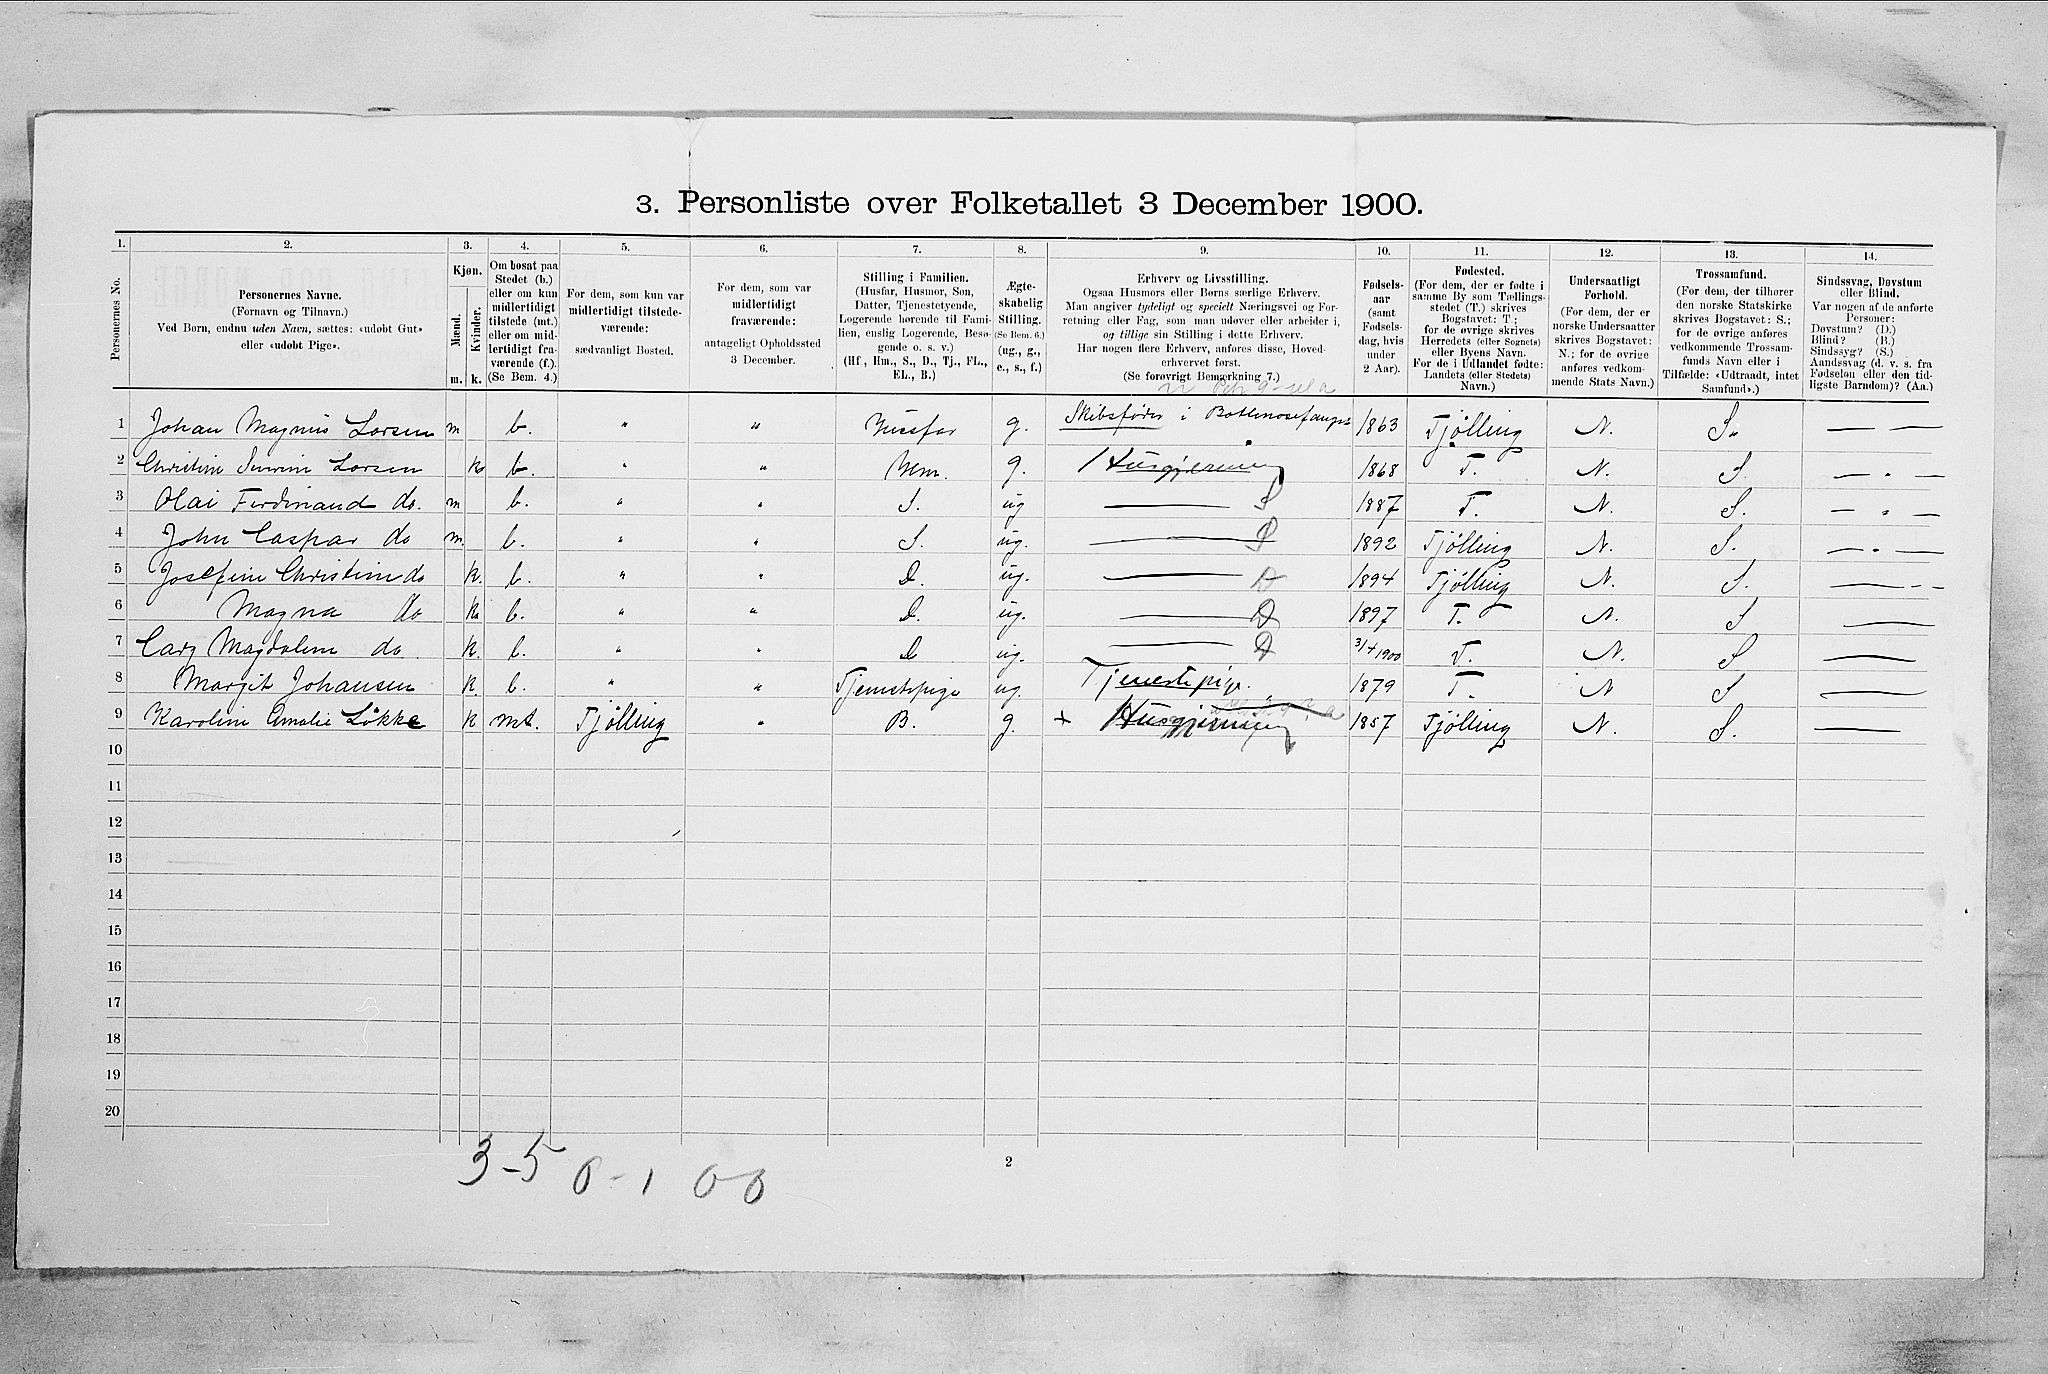 3. Personliste over Folketallet 3 December 1900.
1. 2. 3. 4. 5. 6. 7. 8. 9. 10. 11. 12. 13. 14.
Personernes No.
Personernes Navne.
(Fornavn og Tilnavn.)
Ved Børn, endnu uden Navn, sættes: «udøbt Gut»
eller «udøbt Pige».
Kjøn.
Mænd.
Kvinder.
m. k.
Om bosat paa
Stedet (b.)
eller om kun
midlertidigt
tilstede (mt.)
eller om mid-
lertidigt fra-
værende (f.).
(Se Bem. 4.)
For dem, som kun var
midlertidigt tilstede-
værende:
sædvanligt Bosted.
For dem, som var
midlertidigt
fraværende:
antageligt Opholdssted
3 December.
Stilling i Familien.
(Husfar, Husmor, Søn,
Datter, Tjenestetyende,
Logerende hørende til Fami-
lien, enslig Logerende, Besø-
gende o. s. v.)
(Hf., Hm., S., D., Tj., FL.,
EL., B.)
Ægte-
skabelig
Stilling.
(Se Bem. 6.)
(ug., g.,
e., s., f.)
Erhverv og Livsstilling.
Ogsaa Husmors eller Børns særlige Erhverv.
Man angiver tydeligt og specielt Næringsvei og For-
retning eller Fag, som man udøver eller arbeider i,
og tillige sin Stilling i dette Erhverv.
Har nogen flere Erhverv, anføres disse, Hoved-
erhvervet først.
(Se forøvrigt Bemerkning 7.)
Fødsels-
aar
(samt
Fødsels-
dag, hvis
under
2 Aar).
Fødested.
(For dem, der er fødte i
samme By som Tællings-
stedet (T.) skrives
Bogstavet: T;
for de øvrige skrives
Herredets (eller Sognets)
eller Byens Navn.
For de i Udlandet fødte:
Landets (eller Stedets)
Navn.)
Undersaatligt
Forhold.
(For dem, der er
norske Undersaatter
skrives Bogstavet:
N.; for de øvrige
anføres vedkom-
mende Stats Navn.)
Trossamfund.
(For dem, der tilhører
den norske Statskirke
skrives Bogstavet: S.;
for de øvrige anføres
vedkommende Trossam-
funds Navn eller i
Tilfælde: «Udtraadt, intet
Samfund».)
Sindssvag, Døvstum
eller Blind.
Var nogen af de anførte
Personer:
Døvstum? (D.)
Blind? (B.)
Sindssyg? (S.)
Aandssvag (d. v. s. fra
Fødselen eller den tid-
ligste Barndom)? (Aa.)
1 Johan Magnus Larsen m b. " " Husfar g. Skibsfører i Bottlenosefangst 1863 Tjølling N. S. — —
2 Christine Larsen k b. " " Hm. g. Husgjerning 1868 T. N. S. — " —
3 Olai Ferdinand do. m b. " " S. ug — S 1887 T. N. S. — " —
4 John Caspar do m. b. " " S. ug. — S 1892 Tjølling N. S. — " —
5 Josefine Christine do k. b. " " D. ug. — D 1894 Tjølling N. S. — - -
6 Magna do k b. " " D. ug. — D 1897 T. N. S —
7 Magdalene do k. b. " " D ug. — D 3/4 1900 T. N. S —
8 Margit Johansen k. b. " " Tjenestepige ug. Tjenestepige. 1879 T. N S —
9 Karoline Amalie Løkke k mt. Tjølling " B. g. + Husgjerning 1857 Tjølling N. S. —
10
11
12
13
14
15
16
17
18
19
20
3-5 0-1 00
2